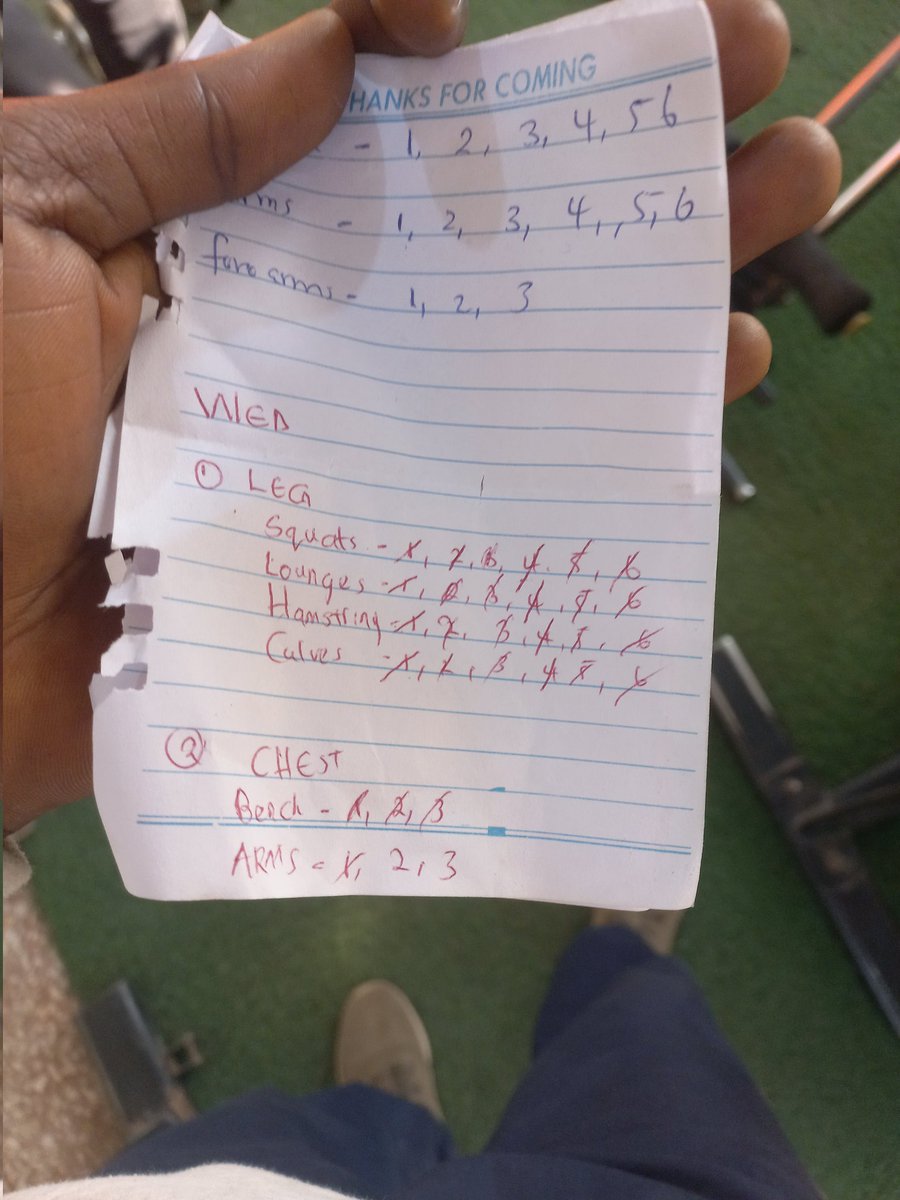 HANKS FOR COMING
- 1, 2, 3, 4, 5 6
rms - 1, 2, 3, 4,,5, 6
fore arms - 1, 2, 3
WED
① LEG
Squats - 1, 2, 3, 4. 5, 6
Lounges - 1, 2, 3, 4, 5, 6
Hamstring - 1, 2, 3, 4, 5, 6
Calves - 1, 2, 3, 4 5, 6
② CHEST
Bench - 1, 2, 3
ARMS - 1, 2, 3